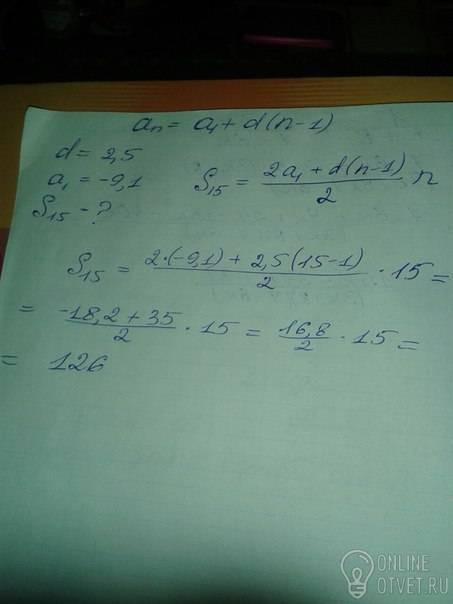 aₙ = a₁ + d(n-1)
d = 2,5
a₁ = -9,1
S₁₅ = (2a₁ + d(n-1))/2 n
S₁₅ - ?
S₁₅ = (2·(-9,1) + 2,5(15-1))/2 · 15 =
= (-18,2 + 35)/2 · 15 = 16,8/2 · 15 =
= 126
ONLINE
OTVET.RU